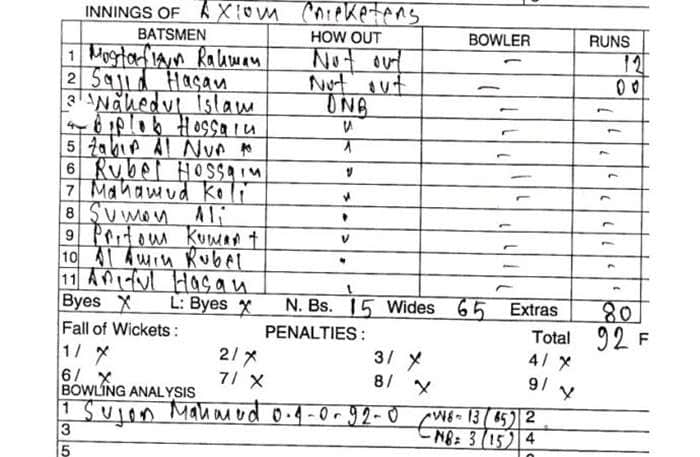 INNINGS OF Axiom Cricketers
BATSMEN HOW OUT BOWLER RUNS
1 Mostafizur Rahman Not out — 12
2 Sajid Hasan Not out — 00
3 Nahedul Islam DNB — —
4 Biplob Hossain " — —
5 Zabir Al Nur " — —
6 Rubel Hossain " — —
7 Mahamud Koli " — —
8 Sumon Ali " — —
9 Pritom Kumar + " — —
10 Al Amin Rubel " — —
11 Ariful Hasan " — —
Byes X L: Byes X N. Bs. 15 Wides 65 Extras 80
Fall of Wickets : PENALTIES : Total 92 F
1/ X 2/ X 3/ X 4/ X
6/ X 7/ X 8/ X 9/ X
BOWLING ANALYSIS
1 Sujon Mahmud 0.4-0-92-0 WB = 13 (65) 2
3 NB = 3 (15) 4
5